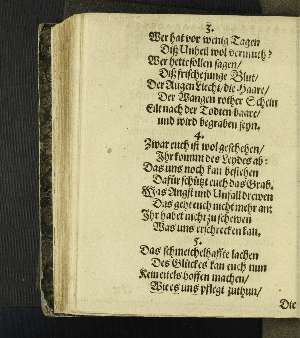 3.
Wer hat vor wenig Tagen
Diß Unheil wol vermuth?
Wer hette sollen sagen/
Diß frische junge Blut/
Der Augen Liecht/die Haare/
Der Wangen rother Schein
Eilt nach der Todten baare/
und wird begraben seyn.
4.
Zwar euch ist wol geschehen/
Ihr kommt des Leydes ab:
Das uns noch kan bestehen
Dafür schützt euch das Grab.
Was Angst und Unfall drewen
Das geht euch nicht mehr an:
Ihr habet nicht zu schewen
Was uns erschrecken kan.
5.
Das schmeichelhaffte lachen
Des Glückes kan euch nun
Kein eitels hoffen machen/
Wie es uns pflegt zuthun/
Die